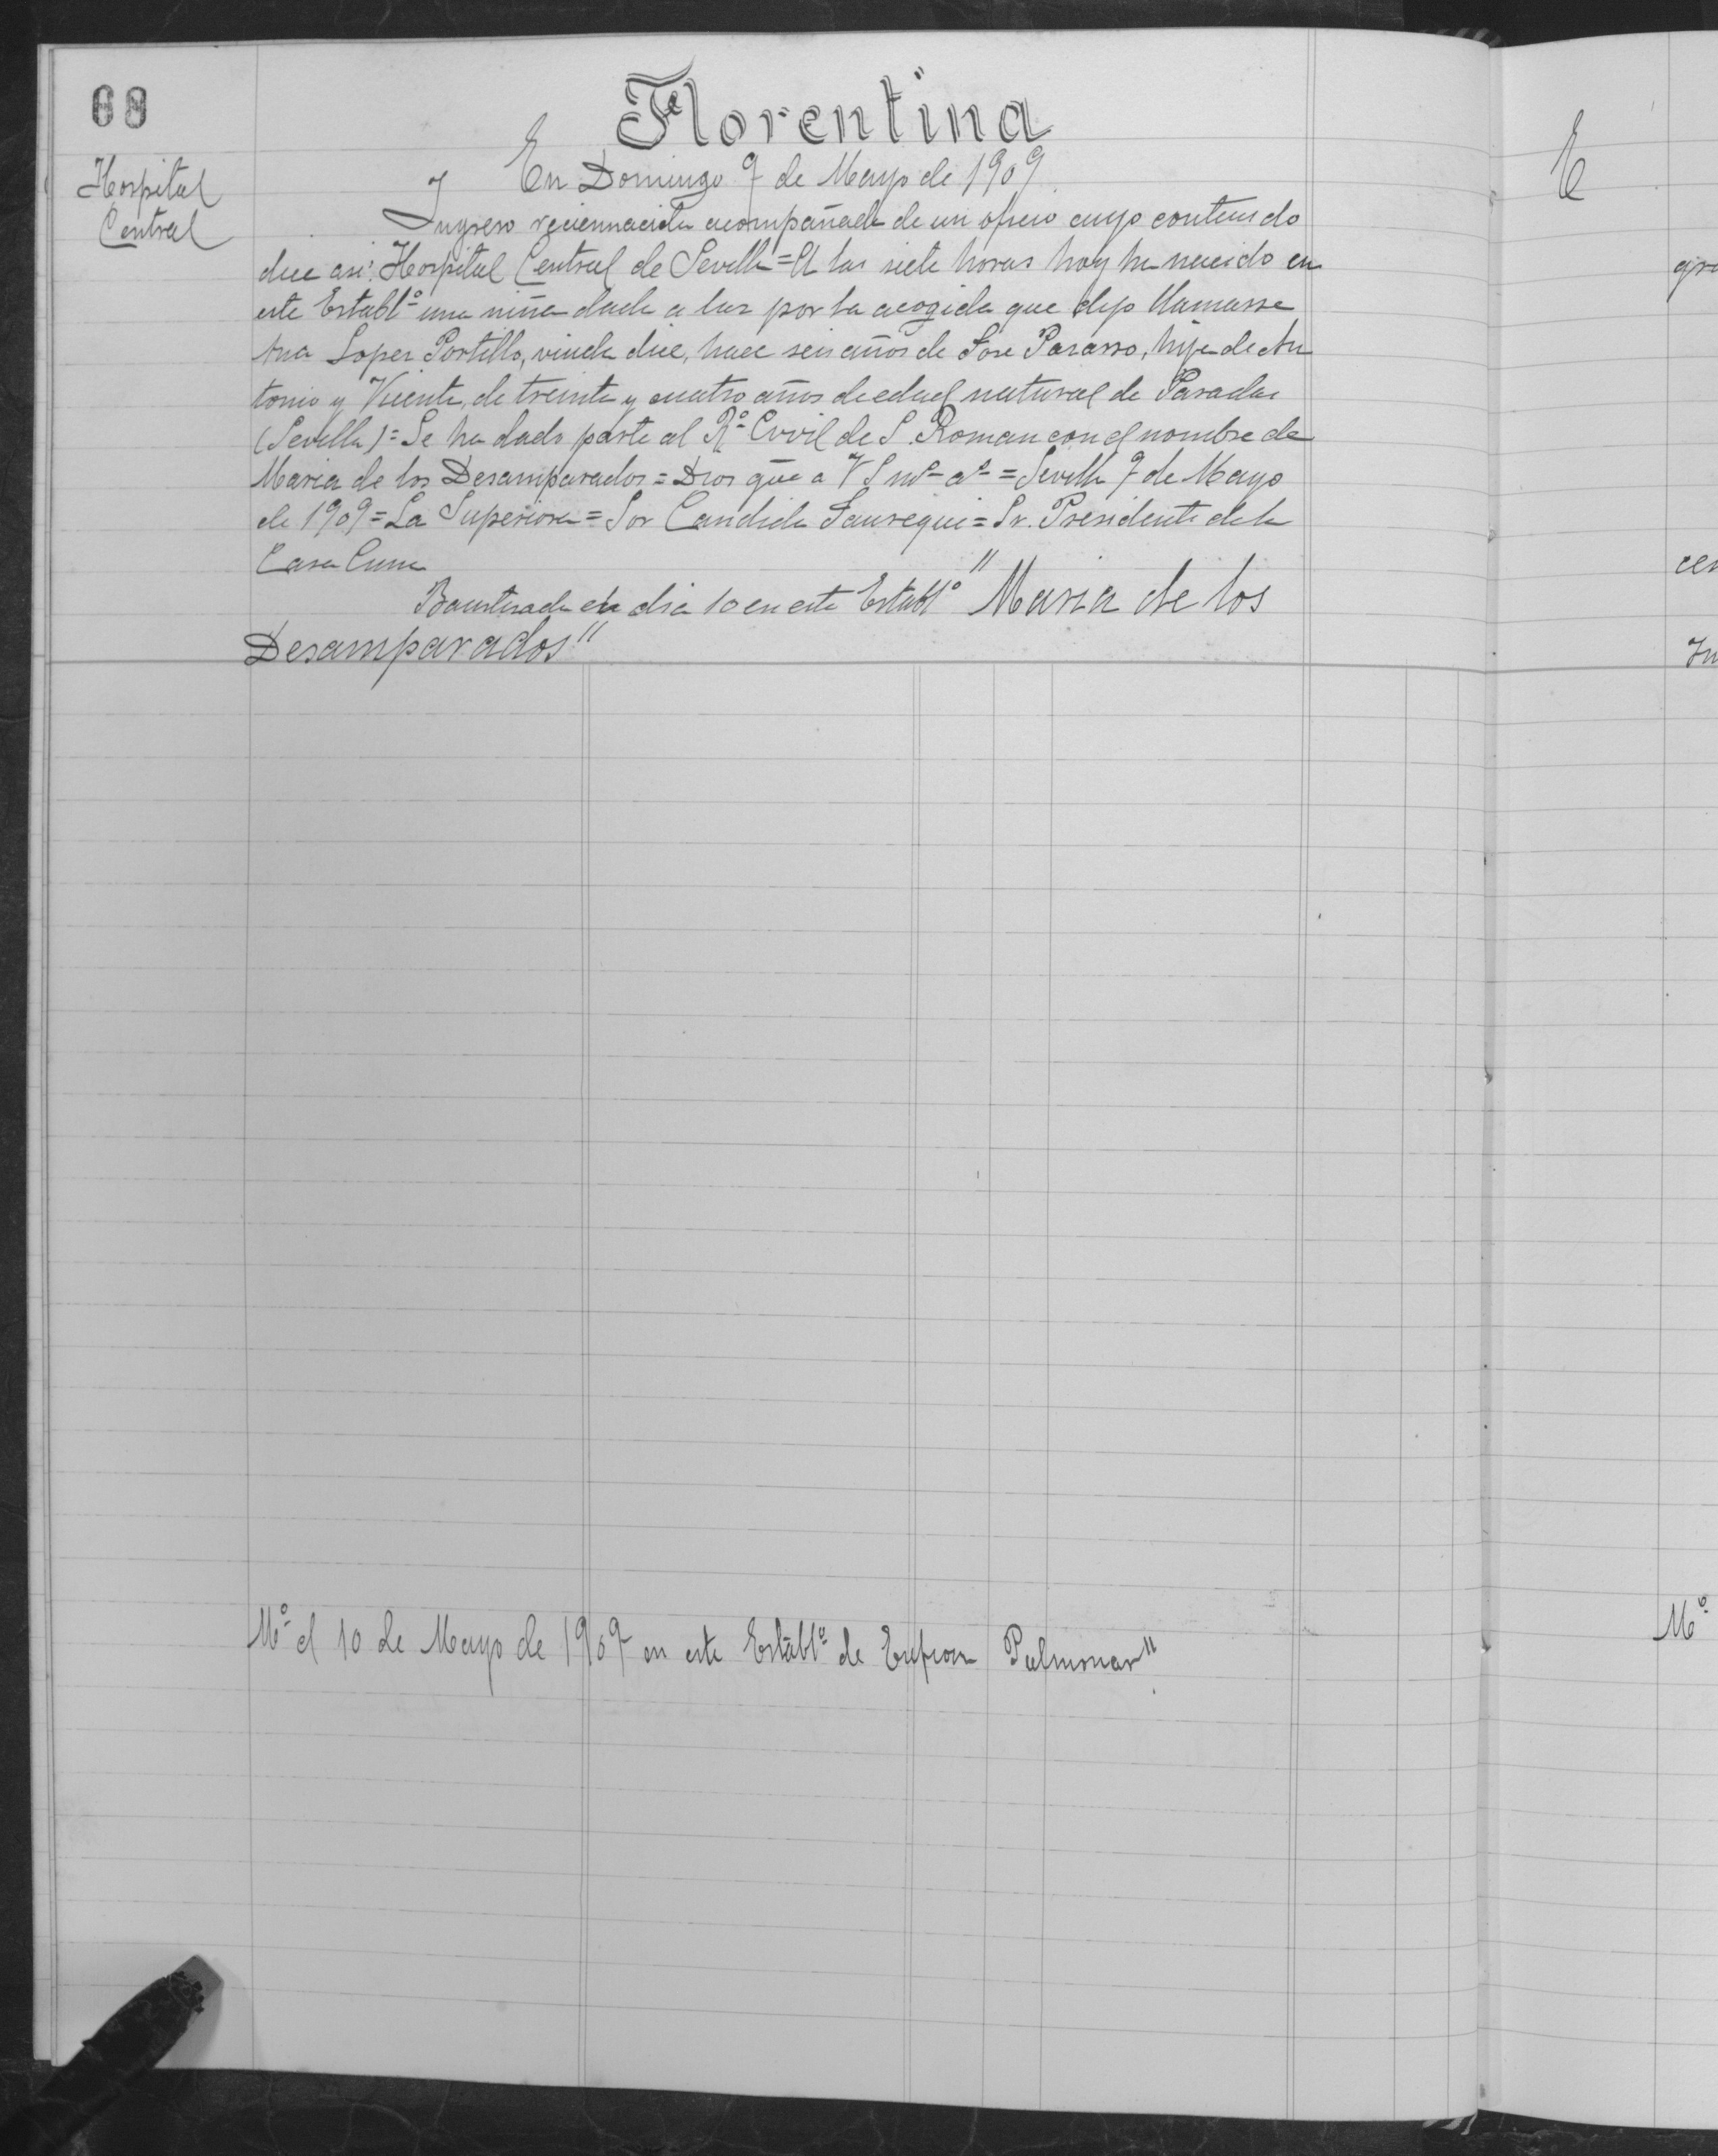 68
Florentina
Hospital
Central
En Domingo 9 de Mayo de 1909.
Ingreso reciennacida acompañada de un oficio cuyo contenido
dice asi: Hospital Central de Sevilla = A las siete horas hoy ha nacido en
este Establº una niña dada a luz por la acogida que dijo llamarse
Ana Lopez Portillo, viuda dice, hace seis años de Jose Parasso, hija de An
tonio y Vicenta, de treinta y cuatro años de edad natural de Paradas
(Sevilla) = Se ha dado parte al Rº Civil de S. Roman con el nombre de
Maria de los Desamparados = Dios gúe a V S mˢ aˢ = Sevilla 9 de Mayo
de 1909 = La Superiora = Sor Candida = Sr. Presidente de la
Casa Cuna
Bautizada el dia 10 en este Establº "Maria de los
Desamparados"
Mº el 10 de Mayo de 1909 en este Establº de Pulmonar"
E
gra
cen
In
Mº